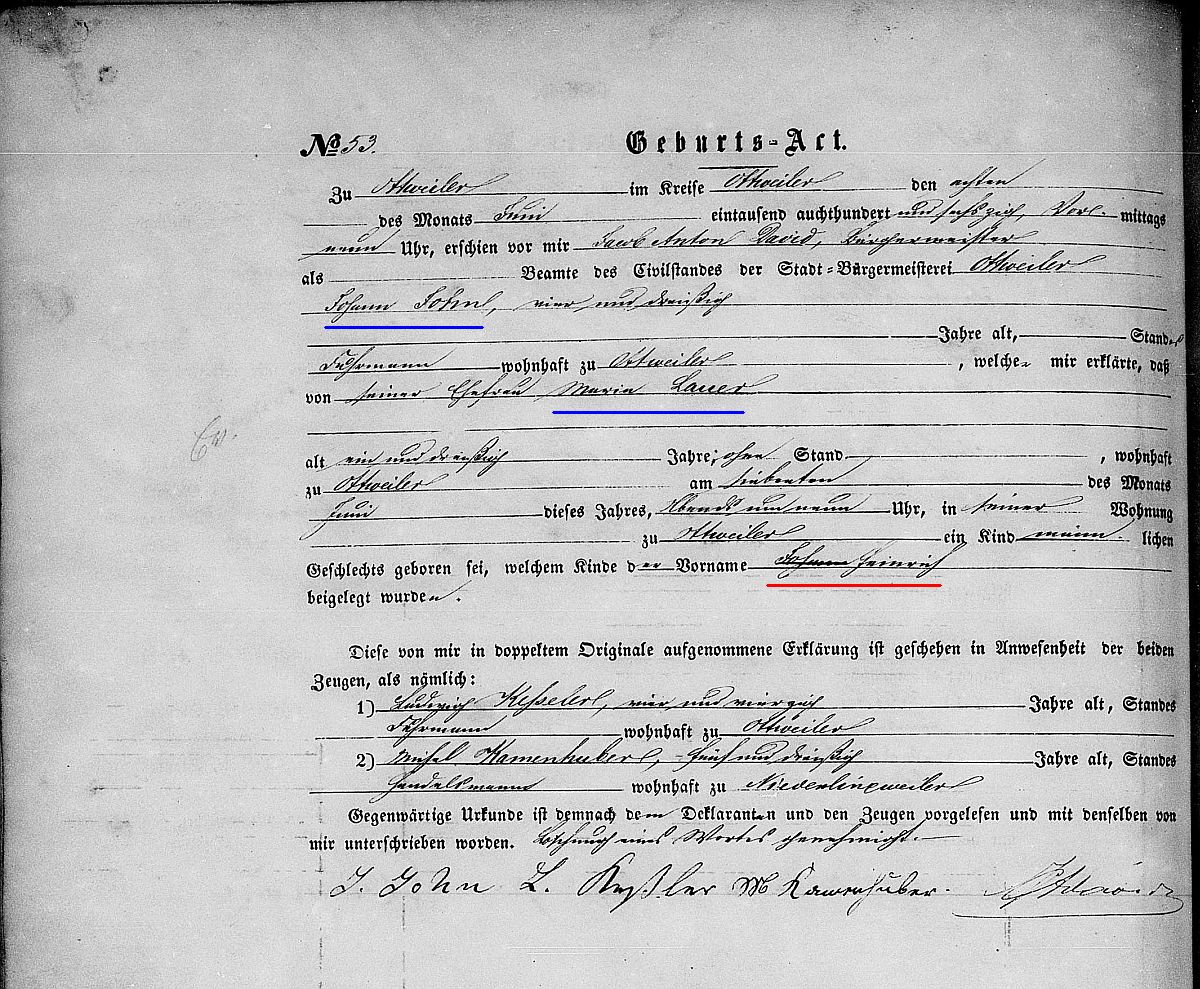 № 53. Geburts-Act.
Zu Ottweiler im Kreise Ottweiler den achten
des Monats Juni eintausend auchthundert und sechszig, Vor- mittags
neun Uhr, erschien vor mir Jacob Anton David, Bürgermeister
als Beamte des Civilstandes der Stadt-Bürgermeisterei Ottweiler
Johann John, vier und dreißig
Jahre alt, Standes
Fuhrmann wohnhaft zu Ottweiler, welcher mir erklärte, daß
von seiner Ehefrau Maria Lauer
alt ein und dreißig Jahre, ohne Stand, wohnhaft
Ev.
zu Ottweiler am siebenten des Monats
Juni dieses Jahres, Abends um neun Uhr, in seiner Wohnung
zu Ottweiler ein Kind männ lichen
Geschlechts geboren sei, welchem Kinde der Vorname Johann Heinrich
beigelegt wurden.
Diese von mir in doppeltem Originale aufgenommene Erklärung ist geschehen in Anwesenheit der beiden
Zeugen, als nämlich:
1) Ludwig Kesseler, vier und vierzig Jahre alt, Standes
Fuhrmann wohnhaft zu Ottweiler
2) Michel Kamenhuber, fünf und dreißig Jahre alt, Standes
Handelsmann wohnhaft zu Niederlinxweiler
Gegenwärtige Urkunde ist demnach dem Deklaranten und den Zeugen vorgelesen und mit denselben von
mir unterschrieben worden. Löschung eines Wortes genehmigt.
J. John L. Keßler M Kamenhuber. David